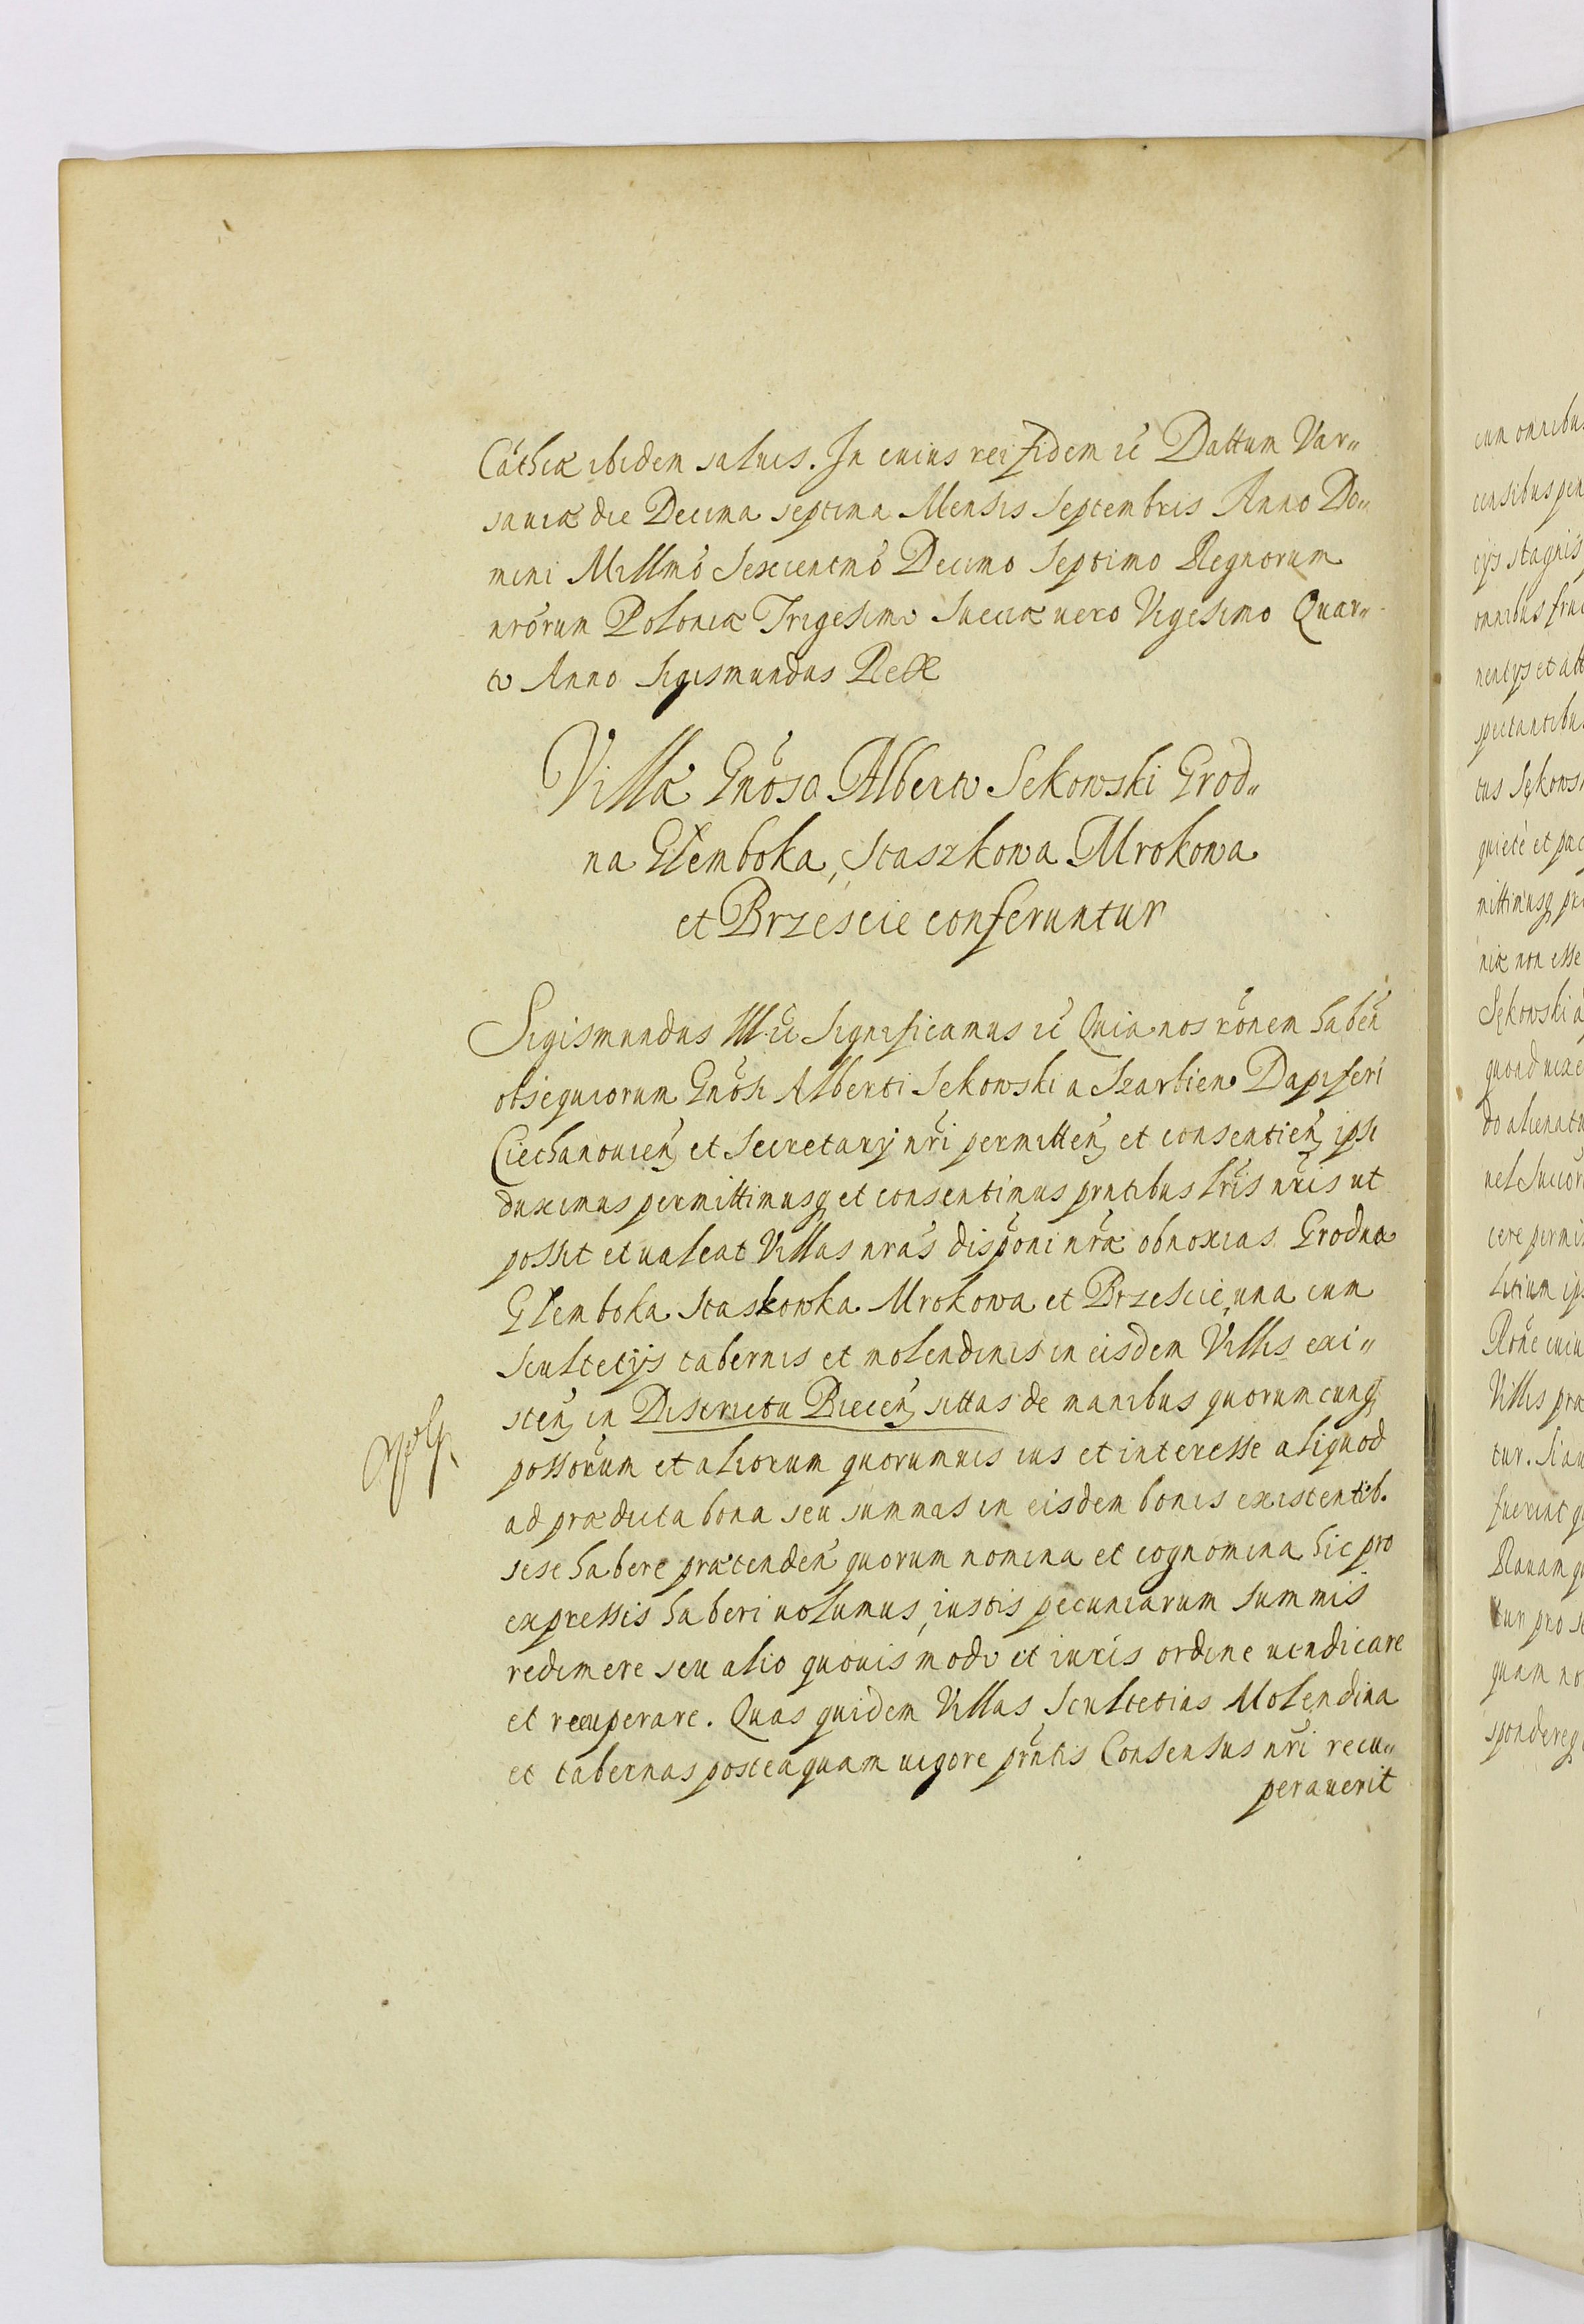 Cathcæ ibidem saluis. In cuius rei fidem ec̃ Dattum Var„
sauiæ die Decima septima Mensis Septembris Anno Do„
mini Millmõ Sexcentmõ Decimo Septimo Regnorum
nrõrum Poloniæ Trigesimo Sueciæ uero Vigesimo Quar„
to Anno Sigismundus Rex
Villæ Gnõso Alberto Sekowski Grod„
na Glemboka, Staszkowa Mrokowa
et Brzescie conferuntur
Sigismundus III ec̃ Significamus ec̃ Quia nos rõnem haben̄
obsequiorum Gnõsi Alberti Sekowski a Dapiferi
Ciechanouien̄ et Secretarÿ nr̃i permitten̄ et consentien̄ ipsi
duximus permittimusq̨ et consentimus pntibus lrĩs nrĩs ut
possit et ualeat Villas nras̃ dispõni nræ̃ obnoxias Grodna
Glemboka Staskowka Mrokowa et Brzescie, una cum
Scultetijs tabernis et molendinis in eisdem Villis exi„
sten̄ in Districtu Biecen̄ sittas de manibus quorumcunq̨
possorũm et aliorum quorumuis ius et interesse aliquod
ad prædicta bona seu summas in eisdem bonis existentib.
sese habere prætenden̄ quorum nomina et cognomina hic pro
expressis haberi uolumus, iustis pecuniarum summis
redimere seu alio quouis modo et iuris ordine uendicare
et recuperare. Quas quidem Villas Scultetias Molendina
et tabernas posteaquam uigore prñtis Consensus nrĩ recu„
perauerit
cum onnibus
censibus pen
cÿs stagnis
onnibus fruc
nentÿs et att
spectantibus
tus Sękows
quiete et pac
mittimusq̨ pr
niæ non esse
Sękowski a
quoad uixe
do alienatu
uel Succor
cere permis
litium ips
Rone cuiu
Villis præ
tur. Si au
fuerint q
Rauam q
tur pro se
quam no
spondereq̨